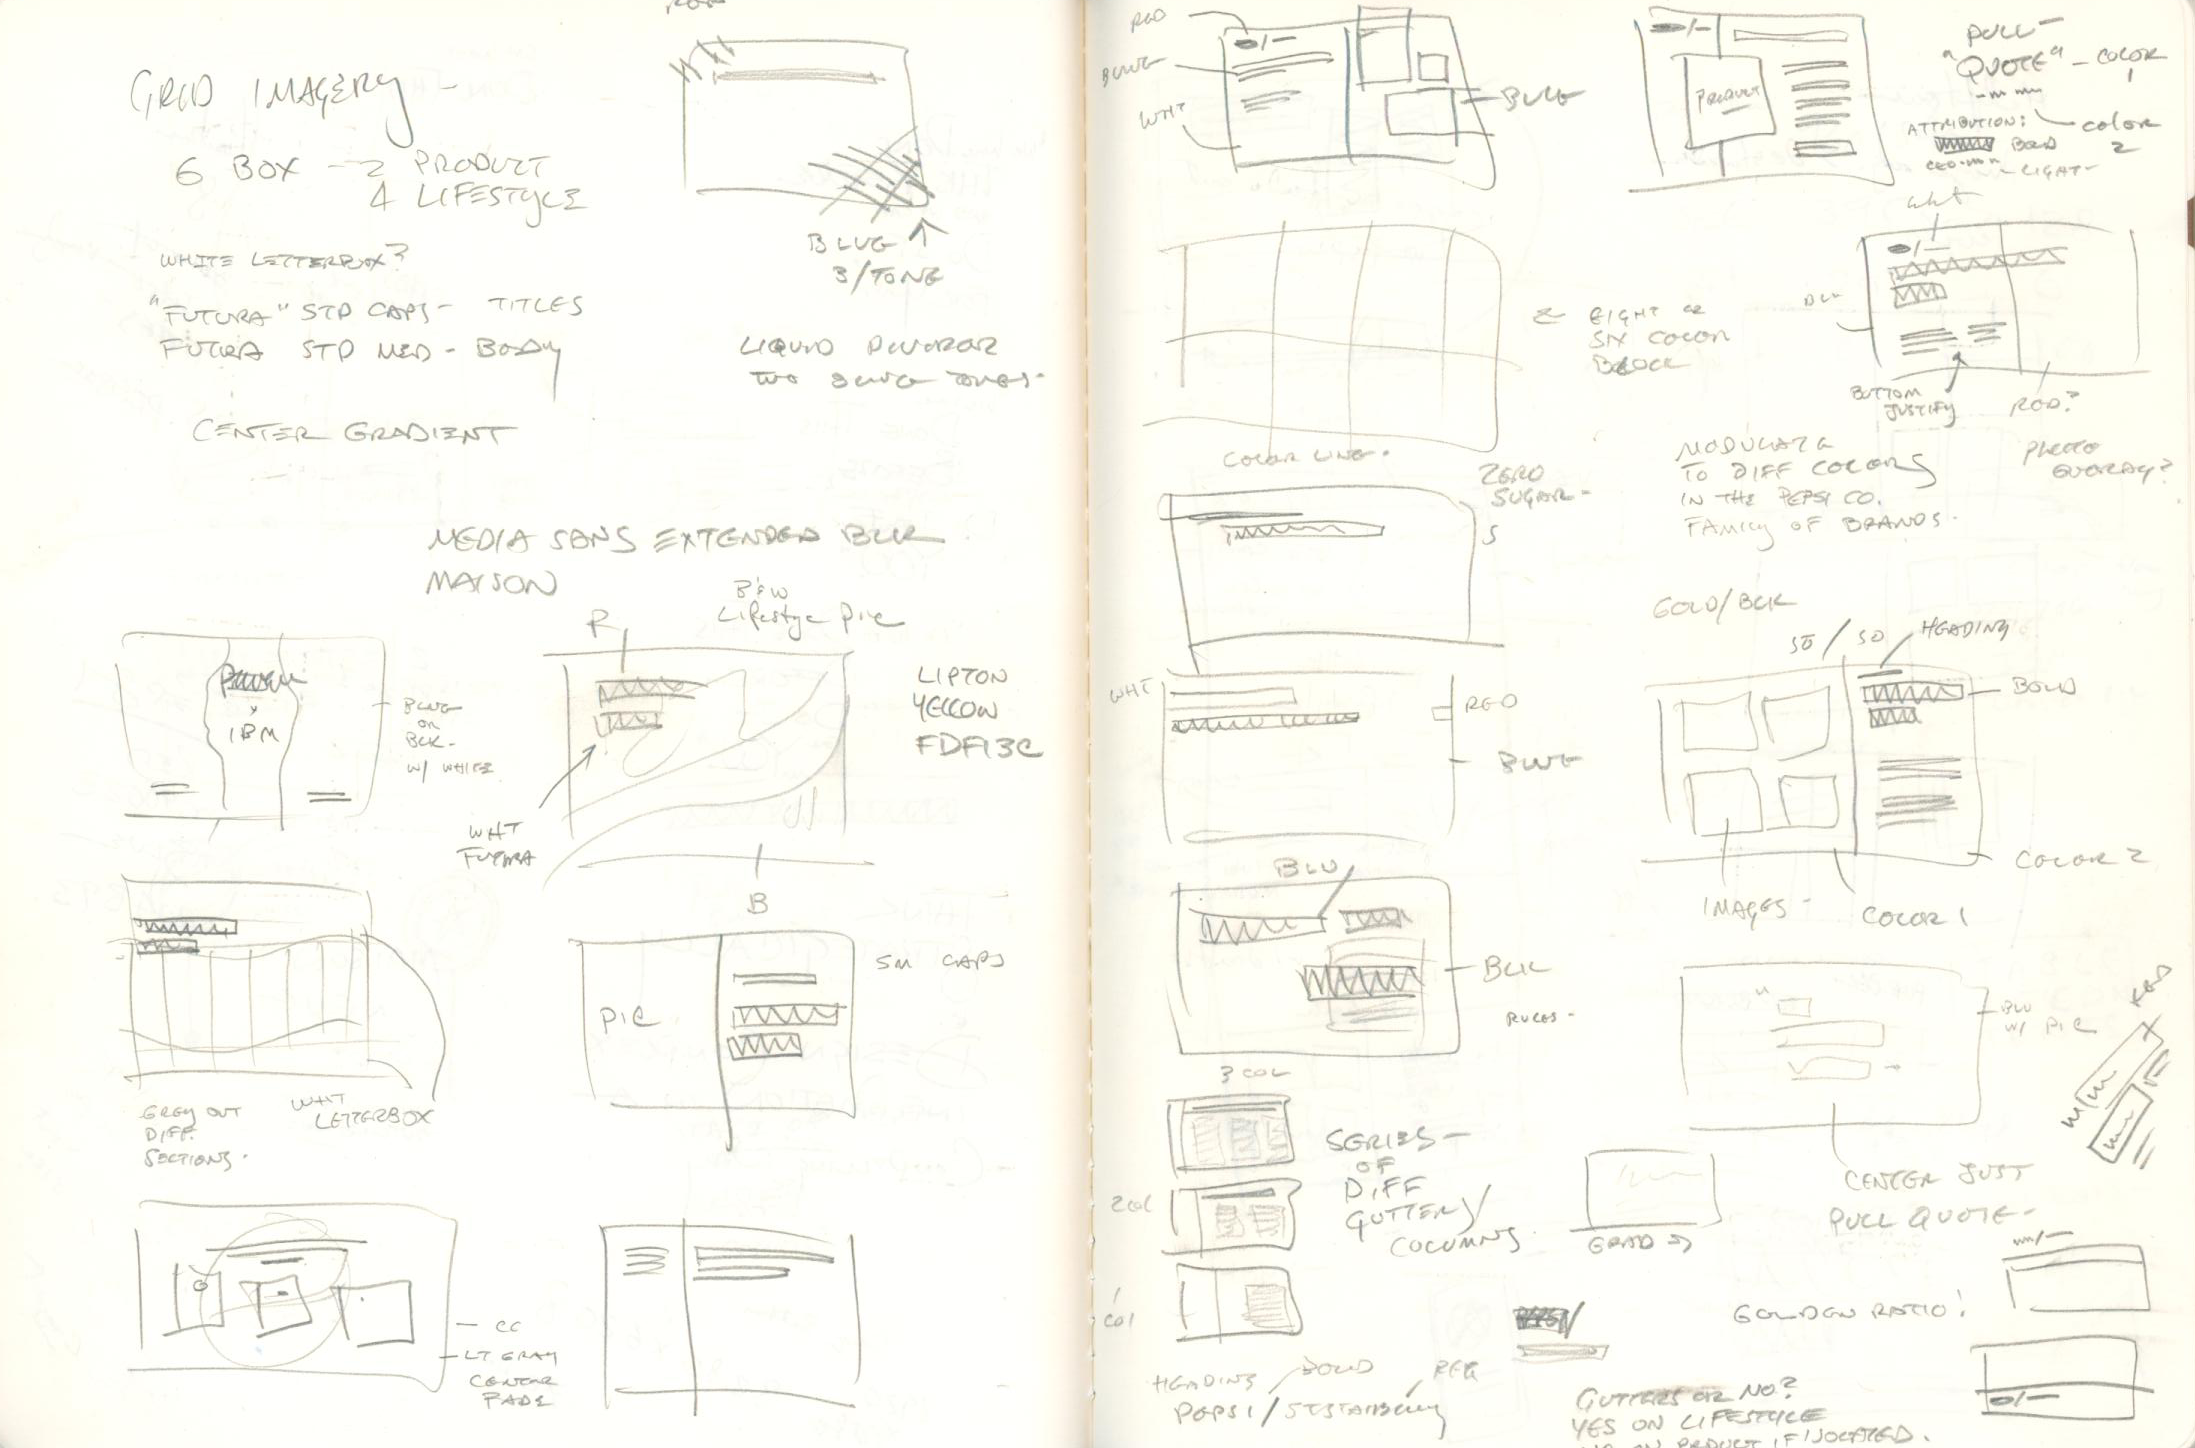 GRID IMAGERY -
6 BOX - 2 PRODUCT
4 LIFESTYLE
WHITE LETTERBOX?
"FUTURA" STD CAPS - TITLES
FUTURA STD MED - BODY
CENTER GRADIENT
BLUE
3/TONE
LIQUID
TWO BLUE TONES -
MEDIA SANS EXTENDED BLK
MAISON
IBM
BLUE
OR
BLK -
W/ WHITE
R
B&W
Lifestyle Pic
WHT
FUTURA
B
LIPTON
YELLOW
GREY OUT
DIFF.
SECTIONS.
WHT
LETTERBOX
PIC
SM CAPS
CC
LT GRAY
CENTER
FADE
RED
BLUE
WHT
BLUE
PRODUCT
PULL
"QUOTE" - COLOR
1
ATTRIBUTION:
BOLD
COLOR
2
CEO
LIGHT -
WHT
BLU
BOTTOM
JUSTIFY
RED?
PHOTO
OVERLAY?
EIGHT OR
SIX COLOR
BLOCK
COLOR LINE.
MODULATE
TO DIFF COLORS
IN THE PEPSI CO.
FAMILY OF BRANDS.
ZERO
SUGAR -
WHT
RED
BLUE
GOLD/BLK
50 / 50
HEADING
BOLD
IMAGES -
COLOR 1
COLOR 2
BLU
BLK
RULES -
BLU
W/ PIC
CENTER JUST
PULL QUOTE -
3 COL
2 COL
1
COL
SERIES -
OF
DIFF
GUTTERS/
COLUMNS.
GRAD
GOLDEN RATIO!
HEADING
BOLD
REG
PEPSI /
GUTTERS OR NO?
YES ON LIFESTYLE
NO ON PRODUCT IF ISOLATED.